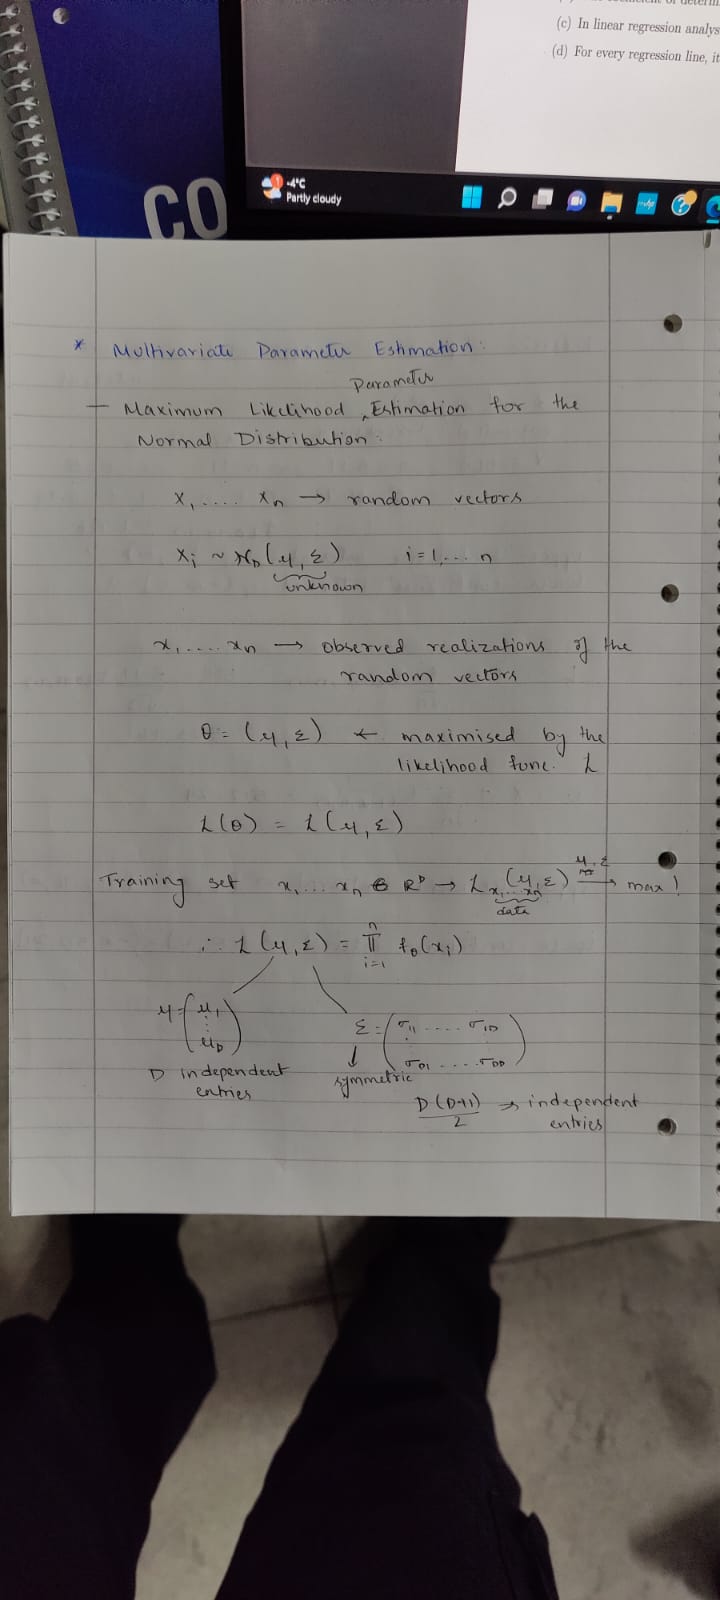 (c) In linear regression analys
(d) For every regression line, it
-4°C
Partly cloudy
CO
* Multivariate Parameter Estimation:
Parameter
— Maximum Likelihood ‸ Estimation for the
Normal Distribution:
X₁ .... Xₙ → random vectors
Xᵢ ~ N_D (μ, Σ) i = 1, ... n
unknown
x₁ ..... xₙ → observed realizations of the
random vectors
θ = (μ, Σ) ← maximised by the
likelihood func. L
L(θ) = L(μ, Σ)
Training set x₁ ... xₙ ∈ ℝᴰ → L x₁...xₙ (μ, Σ) μ, Σ → max!
data
∴ L(μ, Σ) = n Π i=1 f_θ(xᵢ)
μ = (μ₁ ⋮ μ_D)
Σ = (σ₁₁ ..... σ₁D
σD1 ..... σDD)
D independent
entries
symmetric
D(D+1)/2 → independent
entries